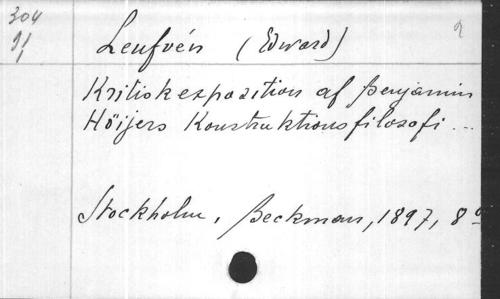 304
91
Leufvén (Edward) 2
Kritisk exposition af Benjamin
Höijers Konstruktionsfilosofi ...
Stockholm, Beckman, 1897, 8º